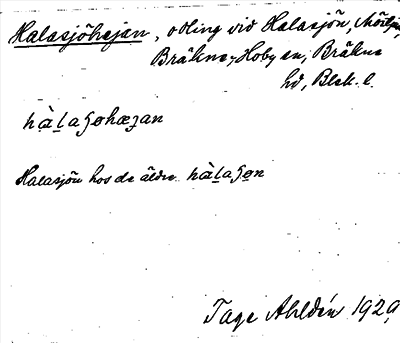 Halasjöhejan, odling vid Halasjön,
Bräkne-Hoby sn, Bräkne
hd, Blek. l.
hàlaʒøhæʒan
Halasjön hos de äldre hàlaʒøn
Tage Ahldén 1929